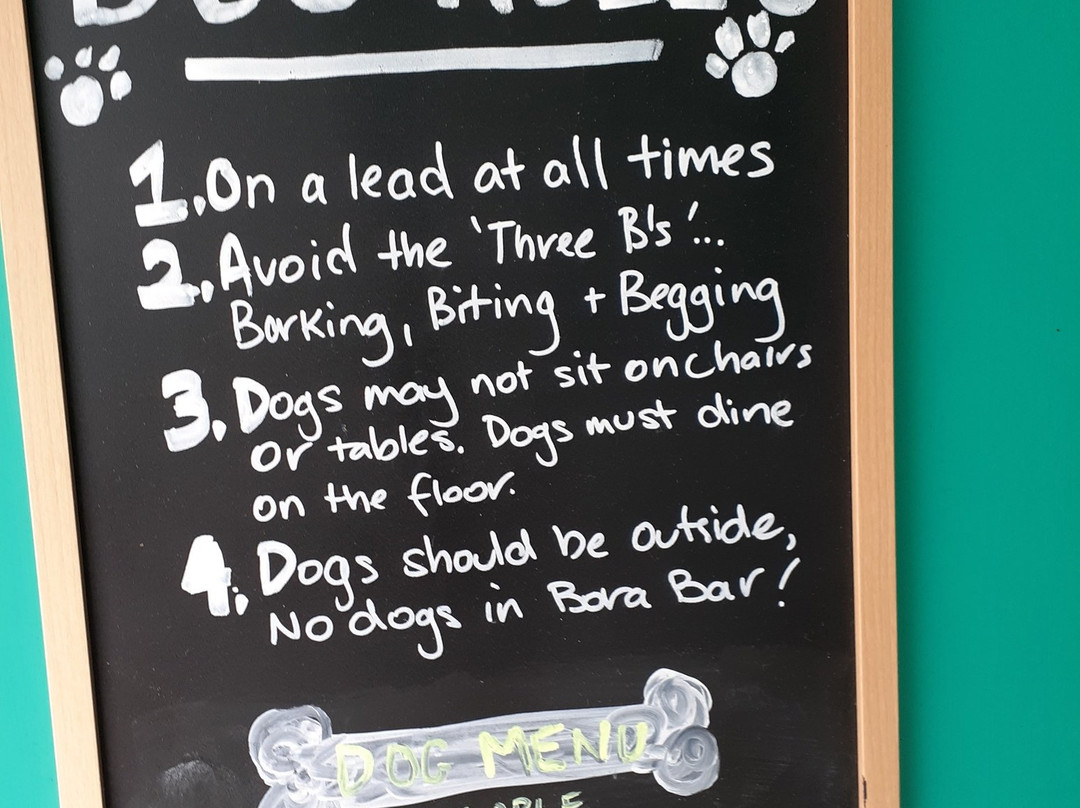 DOG RULES
1. On a lead at all times
2. Avoid the 'Three B's'...
Barking, Biting + Begging
3. Dogs may not sit on chairs
or tables. Dogs must dine
on the floor.
4. Dogs should be outside,
No dogs in Bora Bar!
DOG MENU